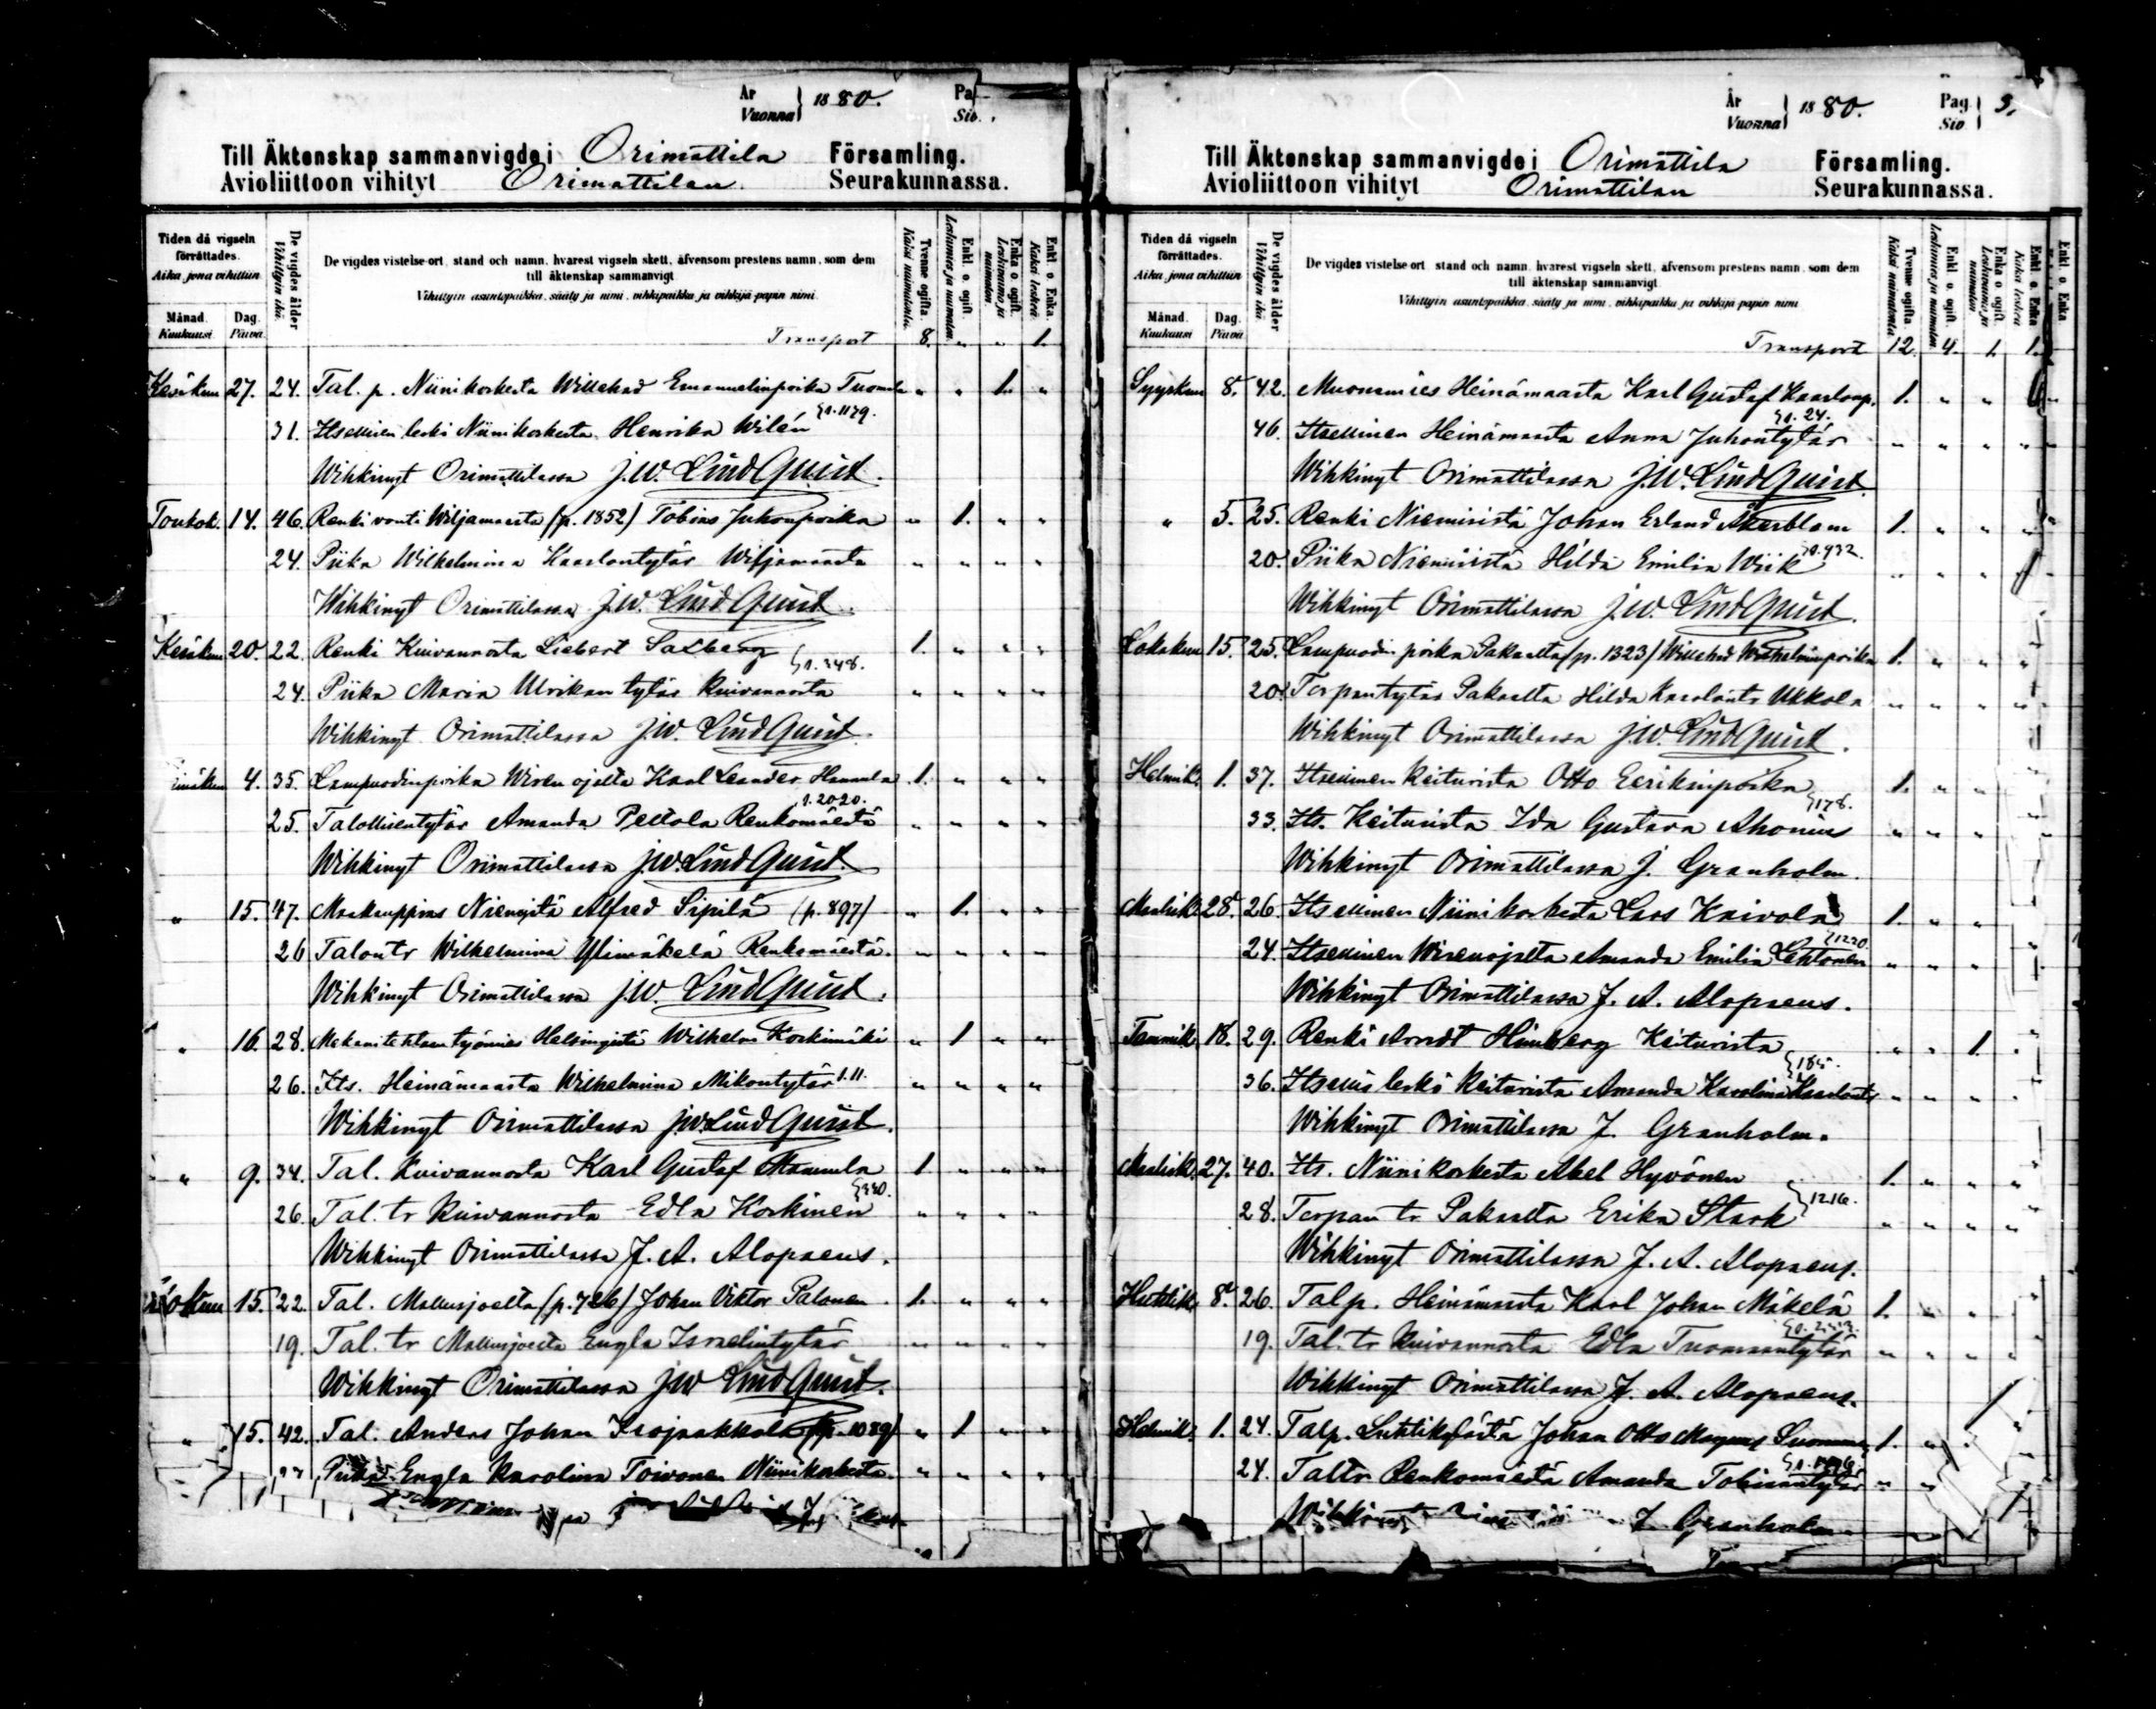 År Vuonna } 1880. Pa Siv.
Till Äktenskap sammanvigde i Orimattila Församling.
Avioliittoon vihityt Orimattilan Seurakunnassa.
Tiden då vigseln förrättades. Aika, jona vihittiin
Månad. Kuukausi Dag. Päivä
De vigdes ålder Vihittyin ikä.
De vigdes vistelse-ort, stand och namn, hvarest vigseln skett, äfvensom prestens namn, som dem till äktenskap sammanvigt.
Vihittyin asuntopaikka, sääty ja nimi, vihkipaikka ja vihkijä-papin nimi.
Tvenne ogifta. Kaksi naimatonta.
Enkl. o. ogift. Leskimies ja naimaton.
Enka o. ogift. Leskivaimo ja naimaton.
Enkl. o Enka. Kaksi leskeä.
Transport 8. " " 1.
Kesäkuu 27. 24. Tal. p. Niinikoskesta Willehad Emanuelinpoika Tuomela " " 1. "
31. Itsellinen leski Niinikoskesta Henrika Wilén
Wihkinyt Orimattilassa J.W. LindQuist.
Toukok. 14. 46. Renki vouti Wiljamaasta (p. 1852) Tobias Juhonpoika " 1. " "
24. Piika Wilhelmina Kaarlontytär Wiljamaasta " " " "
Wihkinyt Orimattilassa J.W. LindQuist.
Kesäkuu 20. 22. Renki Kuivannosta Liebert Saxberg 1. " " "
24. Piika Maria Ulrikan tytär Kuivannosta " " " "
Wihkinyt Orimattilassa J.W. LindQuist.
4. 35. Lampuodinpoika Wirenojalta Karl Leander Hannula 1. " " "
25. Talollisentytär Amanda Peltola Renkomäestä " " " "
Wihkinyt Orimattilassa J.W. LindQuist.
" 15. 47. Maakauppias Niemistä Alfred Sipilä (p. 897) " 1. " "
26 Talontr Wilhelmina Ylimäkelä Renkomäestä. " " " "
Wihkinyt Orimattilassa J.W. LindQuist.
" 16. 28. Helsingistä Wilhelm Koskimäki " 1 " "
26. Its. Heinämaasta Wilhelmina Mikontytär " " " "
Wihkinyt Orimattilassa J.W. LindQuist.
" 9. 34. Tal. Kuivannosta Karl Gustaf Mammela 1. " " "
26. Tal. tr Kuivannosta Edla Koskinen " " " "
Wihkinyt Orimattilassa J. A. Alopaeus.
15. 22. Tal. Mallusjoelta (p. 726) Johan Viktor Palonen 1. " " "
19. Tal. tr Mallusjoelta Engla Israelintytär " " " "
Wihkinyt Orimattilassa J.W LindQuist.
" 15. 42. Tal. Anders Johan Isojaakkola (p. 1089) " 1 " "
Piika Engla Karolina Toivonen Niinikoskesta " " " "
År Vuonna } 1880. Pag. Siv } 3.
Till Äktenskap sammanvigde i Orimattila Församling.
Avioliittoon vihityt Orimattilan Seurakunnassa.
Tiden då vigseln förrättades. Aika, jona vihittiin
Månad. Kuukausi Dag. Päivä
De vigdes ålder Vihittyin ikä.
De vigdes vistelse-ort, stand och namn, hvarest vigseln skett, äfvensom prestens namn, som dem till äktenskap sammanvigt.
Vihittyin asuntopaikka, sääty ja nimi, vihkipaikka ja vihkijä papin nimi
Tvenne ogifta Kaksi naimatonta
Enkl. o. ogift. Leskimies ja naimaton
Enka o. ogift. Leskivaimo ja naimaton.
Enkl o. Enka Kaksi leskeä
Enkl. o. Enka
Transport 12. 4. 1. 1.
Syyskuu 8. 42. Muonamies Heinämaasta Karl Gustaf Kaarlonp. 1. " "
46. Itsellinen Heinämaasta Anna Juhontytär " " " "
Wihkinyt Orimattilassa J.W. LindQuist.
" 5. 25. Renki Niemistä Johan Erland Åkerblom 1. " "
20. Piika Niemistä Hilda Emilia Wiik " " "
Wihkinyt Orimattilassa J.W. LindQuist.
Lokakuu 15. 25. Lampuodin poika Pakaalta (p. 1323) Willehad Wilhelminpoika 1. " " "
20. Torpantytär Pakaalta Hilda Kaarlontr Ukkola " " " "
Wihkinyt Orimattilassa J.W. LindQuist.
Helmik. 1. 37. Itsellinen Keiturista Otto Eerikinpoika 1. " "
33. Its. Keiturista Ida Gustava Ahonius " " "
Wihkinyt Orimattilassa J. Granholm.
Maalisk. 28. 26. Itsellinen Niinikoskesta Lars Kaivola 1. " "
24. Itsellinen Wirenojalta Amanda Emilia Lehtonen " " "
Wihkinyt Orimattilassa J. A. Alopaeus.
Tammik. 18. 29. Renki Arndt Himberg Keiturista " " 1. "
36. Itsellis leski Keiturista Amanda Karolina Kaarlontr " " " "
Wihkinyt Orimattilassa J. Granholm.
Maalisk. 27. 40. Its. Niinikoskesta Abel Hyvönen 1. " " "
1216.
28. Torpan tr. Pakaalta Erika Stark " " " "
Wihkinyt Orimattilassa J. A. Alopaeus.
Huhtik. 8. 26. Tal p. Heinämaasta Karl Johan Mäkelä 1. " "
19. Tal. tr Kuivannosta Edla Tuomaantytär " " " "
Wihkinyt Orimattilassa J. A. Alopaeus.
Helmik. 1. 24. Tal p. Johan Otto Magnus 1. "
24. Tal tr Renkomäestä Amanda Tobiaantytär " "
Wihkinyt J. Granholm